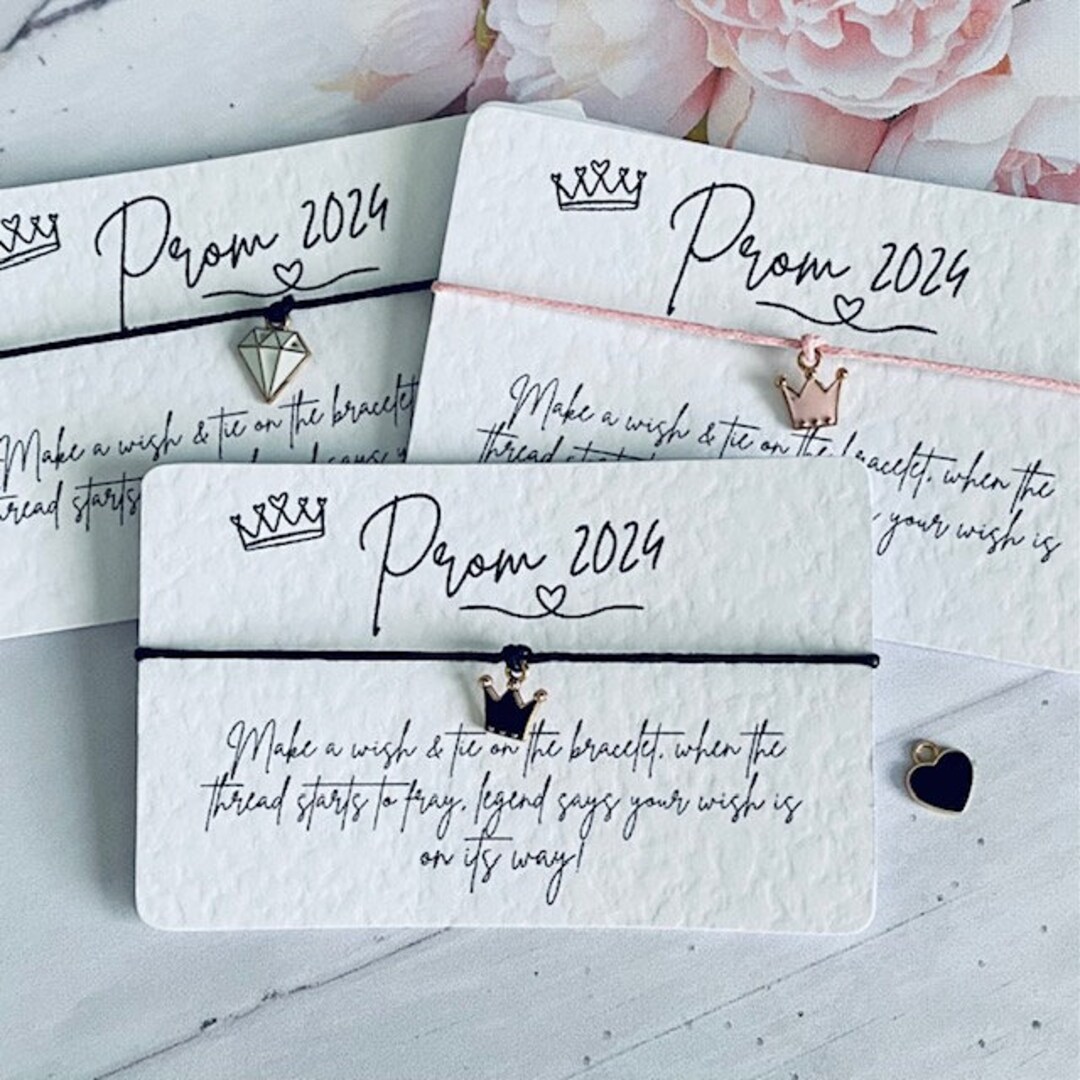 Prom 2024
Make a wish & tie on the bracelet
thread starts
Prom 2024
Make a wish & tie on the bracelet, when the
thread your wish is
Prom 2024
Make a wish & tie on the bracelet, when the
thread starts to fray, legend says your wish is
on its way!